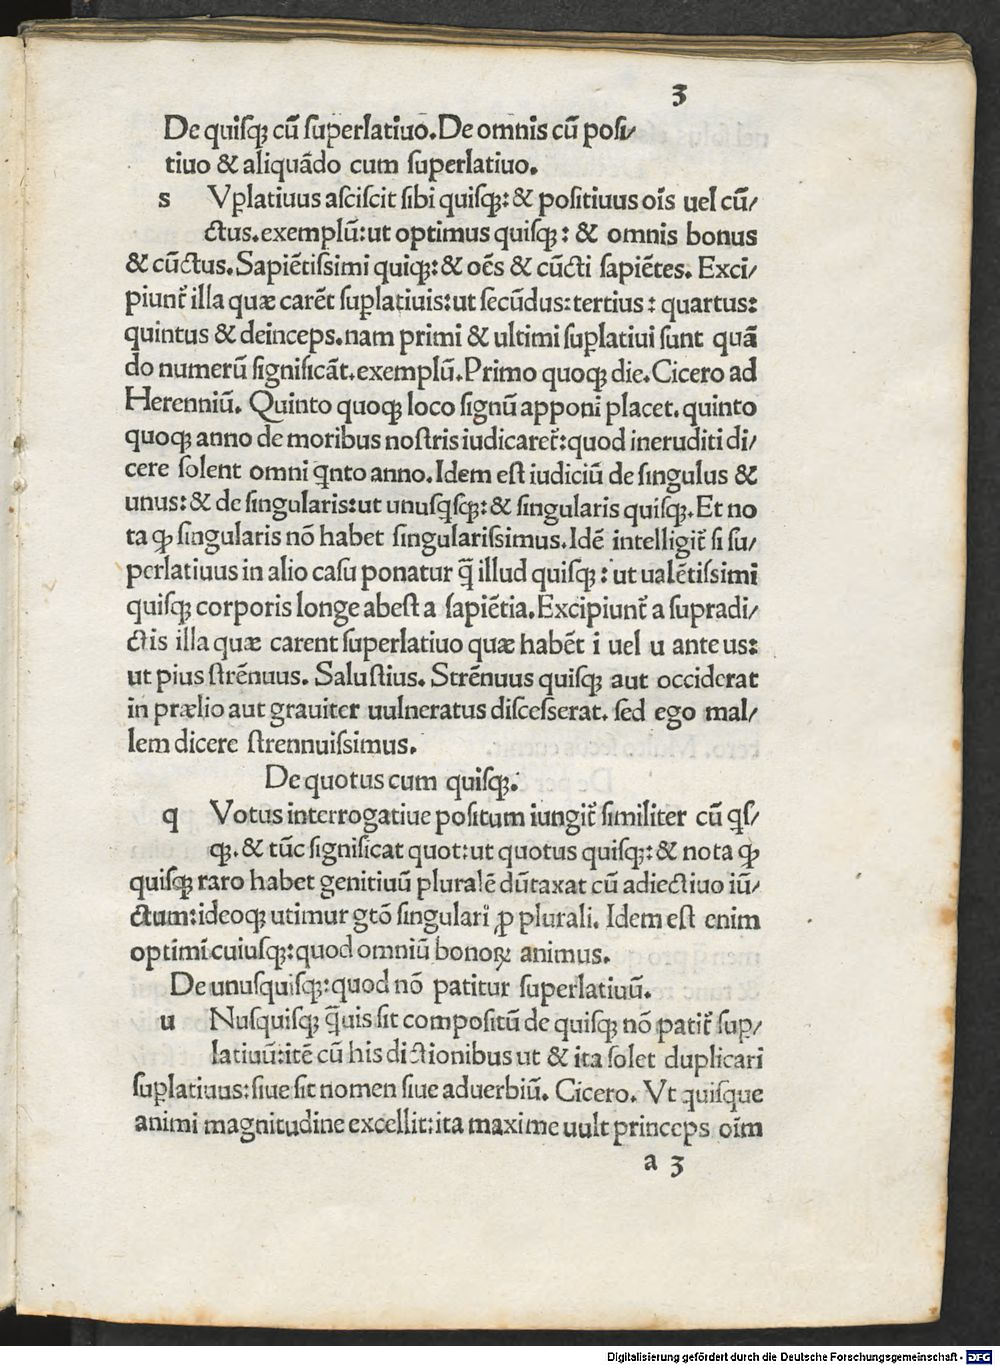 3
De quiſqꝫ cū ſuperlatiuo. De omnis cū poſi/
tiuo & aliquādo cum ſuperlatiuo.
s Vꝑlatiuus aſciſcit ſibi quiſqꝫ: & poſitiuus oīs uel cū/
ctus. exemplū: ut optimus quiſqꝫ: & omnis bonus
& cūctus. Sapiētiſsimi quiqꝫ: & oēs & cūcti ſapiētes. Exci/
piunt᷑ illa quæ carēt ſuꝑlatiuis: ut ſecūdus: tertius: quartus:
quintus & deinceps. nam primi & ultimi ſuꝑlatiui ſunt quā
do numerū ſignificāt. exemplū. Primo quoqꝫ die. Cicero ad
Herenniū. Quinto quoqꝫ loco ſignū apponi placet. quinto
quoqꝫ anno de moribus noſtris iudicaret᷑: quod ineruditi di/
cere ſolent omni qͥnto anno. Idem eſt iudiciū de ſingulus &
unus: & de ſingularis: ut unuſqͥſqꝫ: & ſingularis quiſqꝫ. Et no
ta ꝙ ſingularis nō habet ſingulariſsimus. Idē intelligit᷑ ſi ſu/
perlatiuus in alio caſu ponatur q̄ illud quiſqꝫ: ut ualētiſsimi
quiſqꝫ corporis longe abeſt a ſapiētia. Excipiunt᷑ a ſupradi/
ctis illa quæ carent ſuperlatiuo quæ habēt i uel u ante us:
ut pius ſtrēnuus. Saluſtius. Strēnuus quiſqꝫ aut occiderat
in prælio aut grauiter uulneratus diſceſſerat. ſed ego mal/
lem dicere ſtrennuiſsimus.
De quotus cum quiſqꝫ.
q Votus interrogatiue poſitum iungit᷑ ſimiliter cū qͥſ/
qꝫ. & tūc ſignificat quot: ut quotus quiſqꝫ: & nota ꝙ
quiſqꝫ raro habet genitiuū pluralē dūtaxat cū adiectiuo iū/
ctum: ideoqꝫ utimur gtō ſingulari ꝓ plurali. Idem eſt enim
optimi cuiuſqꝫ: quod omniū bonoꝝ animus.
De unuſquiſqꝫ: quod nō patitur ſuperlatiuū.
u Nuſquiſqꝫ q̄uis ſit compoſitū de quiſqꝫ nō patit᷑ ſuꝑ/
latiuū: itē cū his dictionibus ut & ita ſolet duplicari
ſuꝑlatiuus: ſiue ſit nomen ſiue aduerbiū. Cicero. Vt quiſque
animi magnitudine excellit: ita maxime uult princeps oīm
a 3
Digitalisierung gefördert durch die Deutsche Forschungsgemeinschaft - DFG